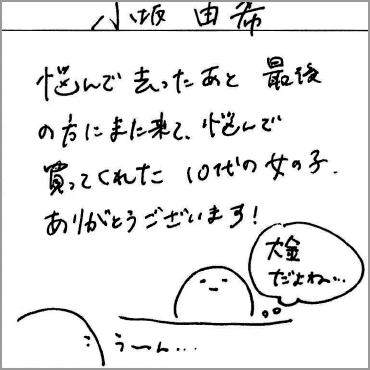 小坂 由希
悩んで去ったあと 最後
の方にまた来て、悩んで
買ってくれた 10代の女の子.
ありがとうございます!
大金
だよね…
う〜ん…